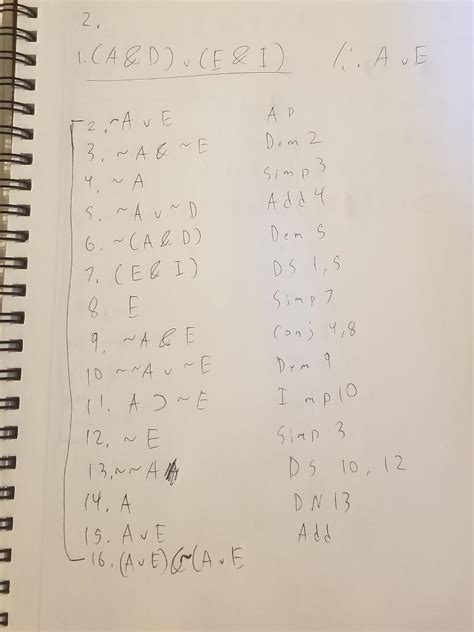 2.
1. (A & D) v (E & I) /∴ A v E
2. ~A v E AP
3. ~A & ~E Dem 2
4. ~A Simp 3
5. ~A v ~D Add 4
6. ~(A & D) Dem 5
7. (E & I) DS 1, 5
8. E Simp 7
9. ~A & E Conj 4, 8
10 ~~A v ~E Dem 9
11. A ⊃ ~E Imp 10
12. ~E Simp 3
13. ~~A DS 10, 12
14. A DN 13
15. A v E Add
16. (A v E) & ~(A v E